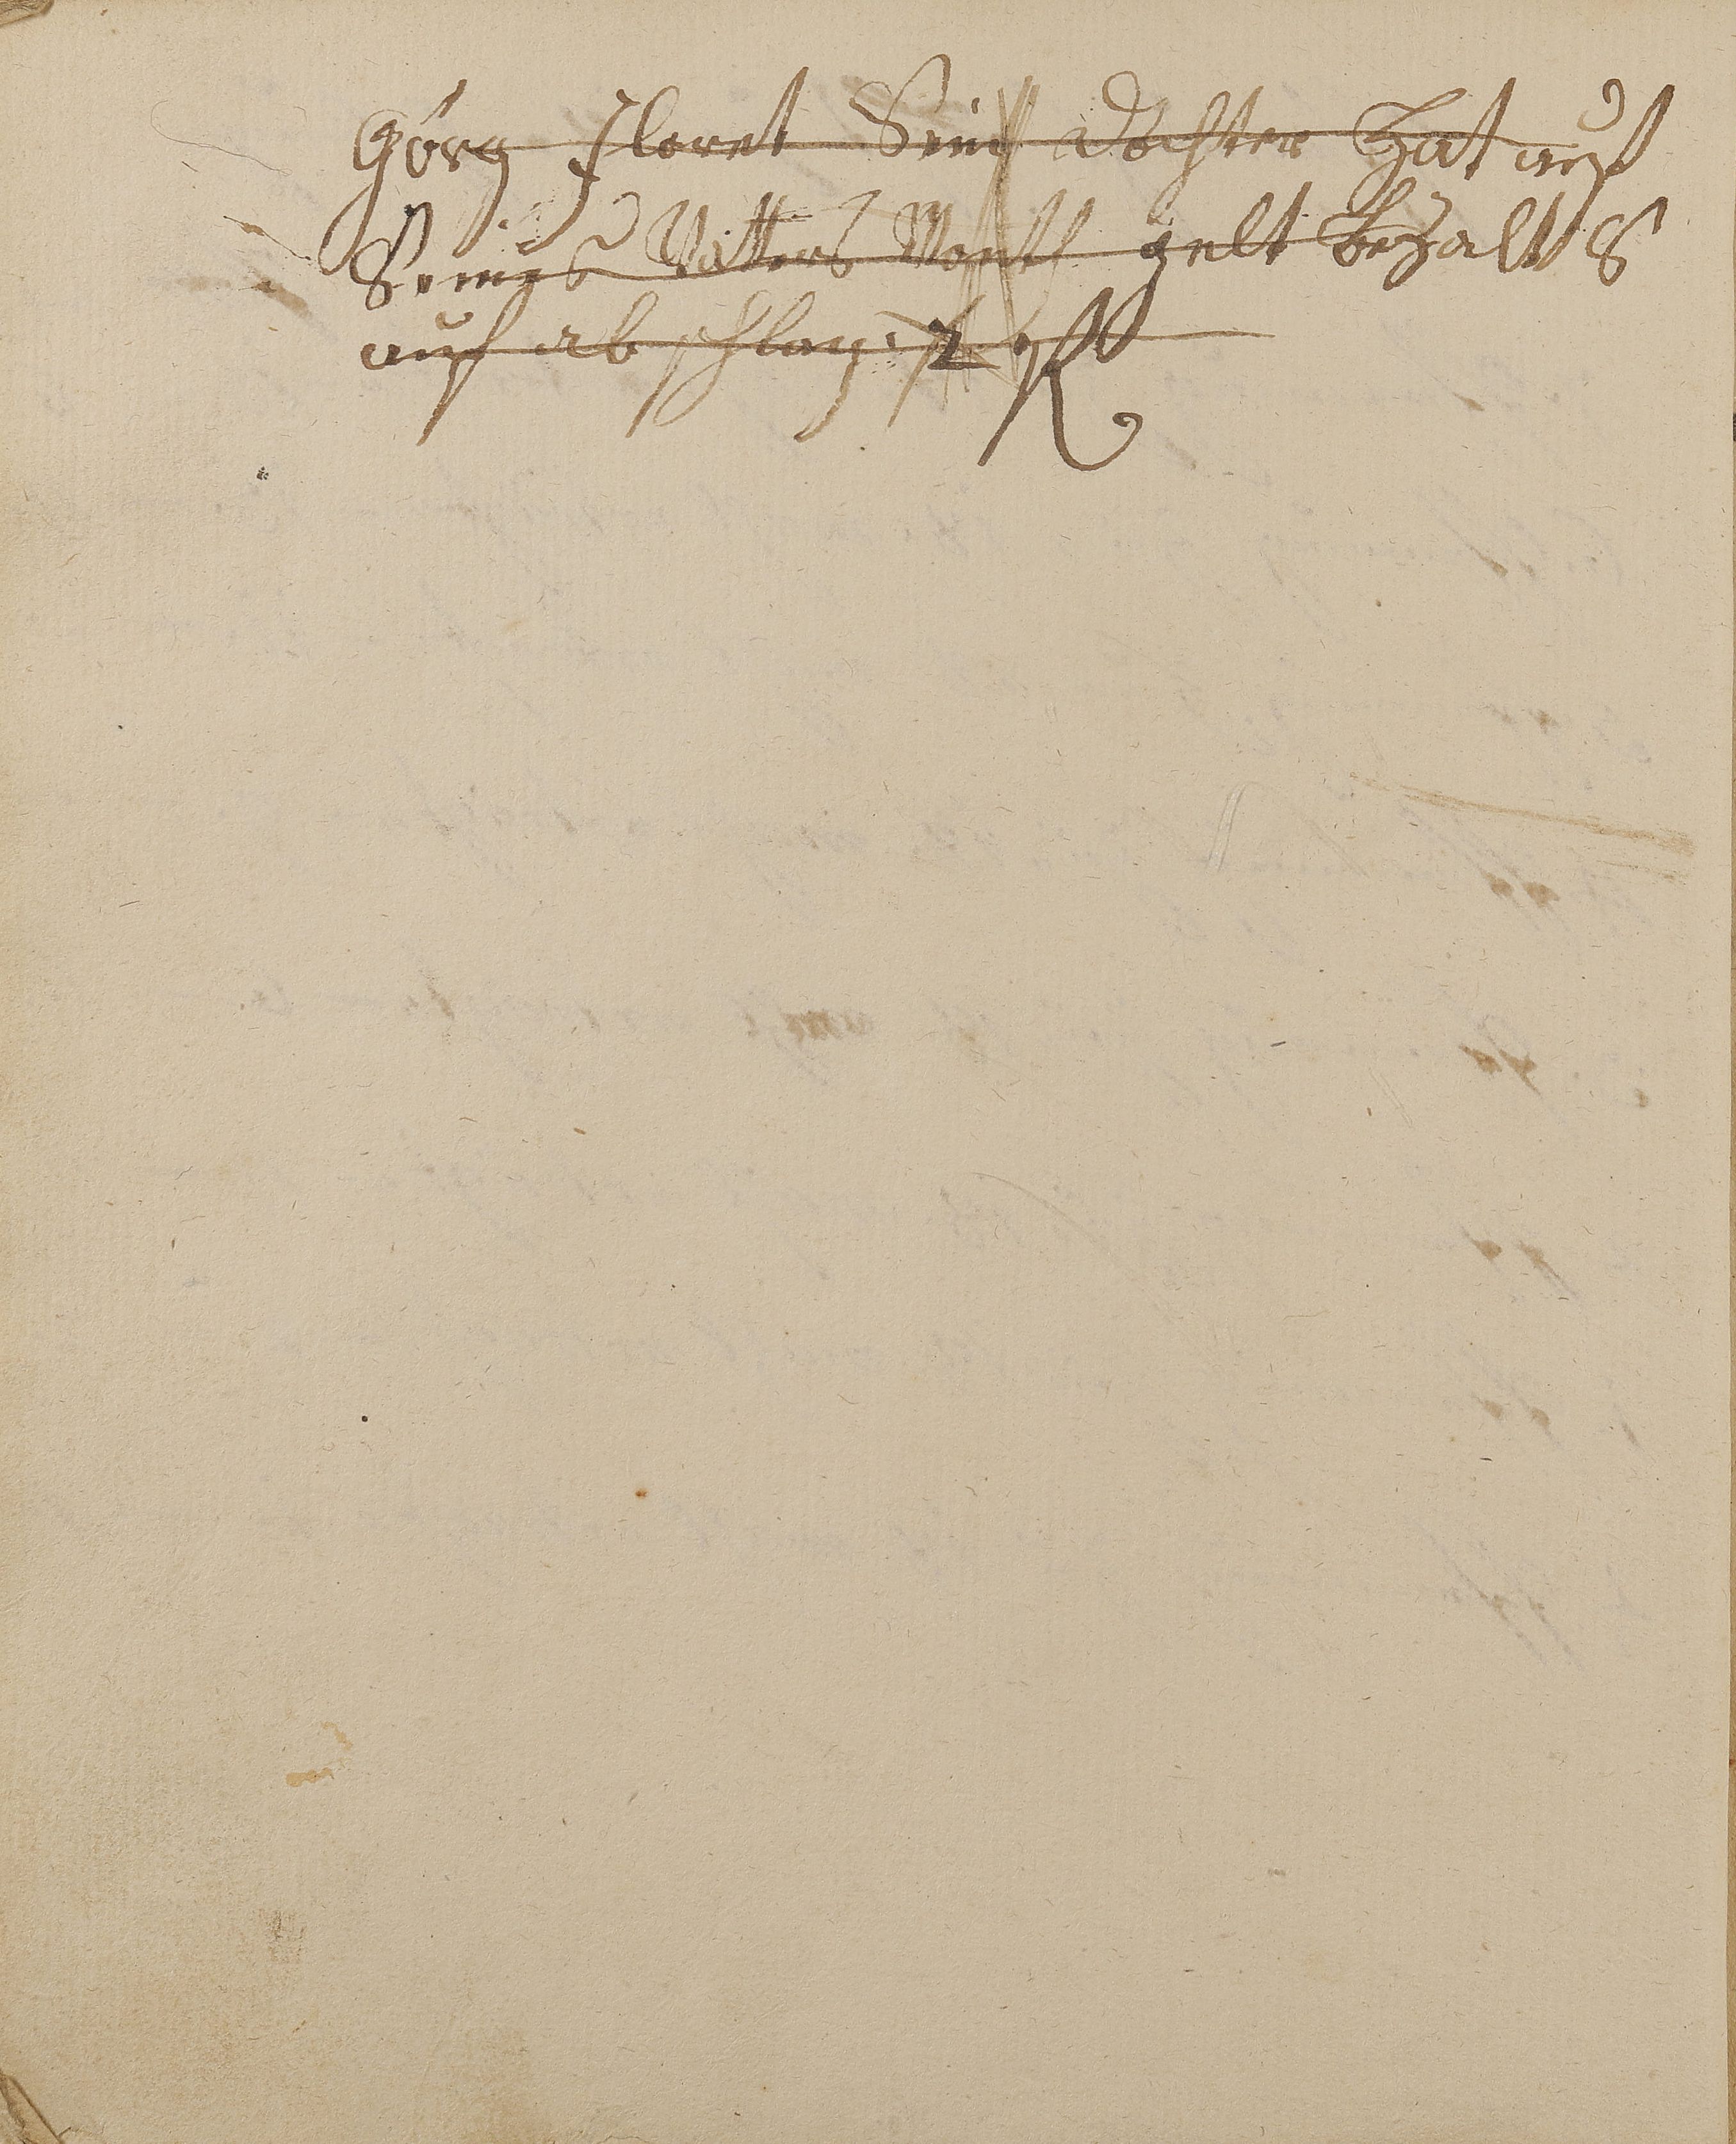 Görg floret Sein dochter hat auß
Seines Vatters Mont gelt bezalt
auf ab schlag 2 R